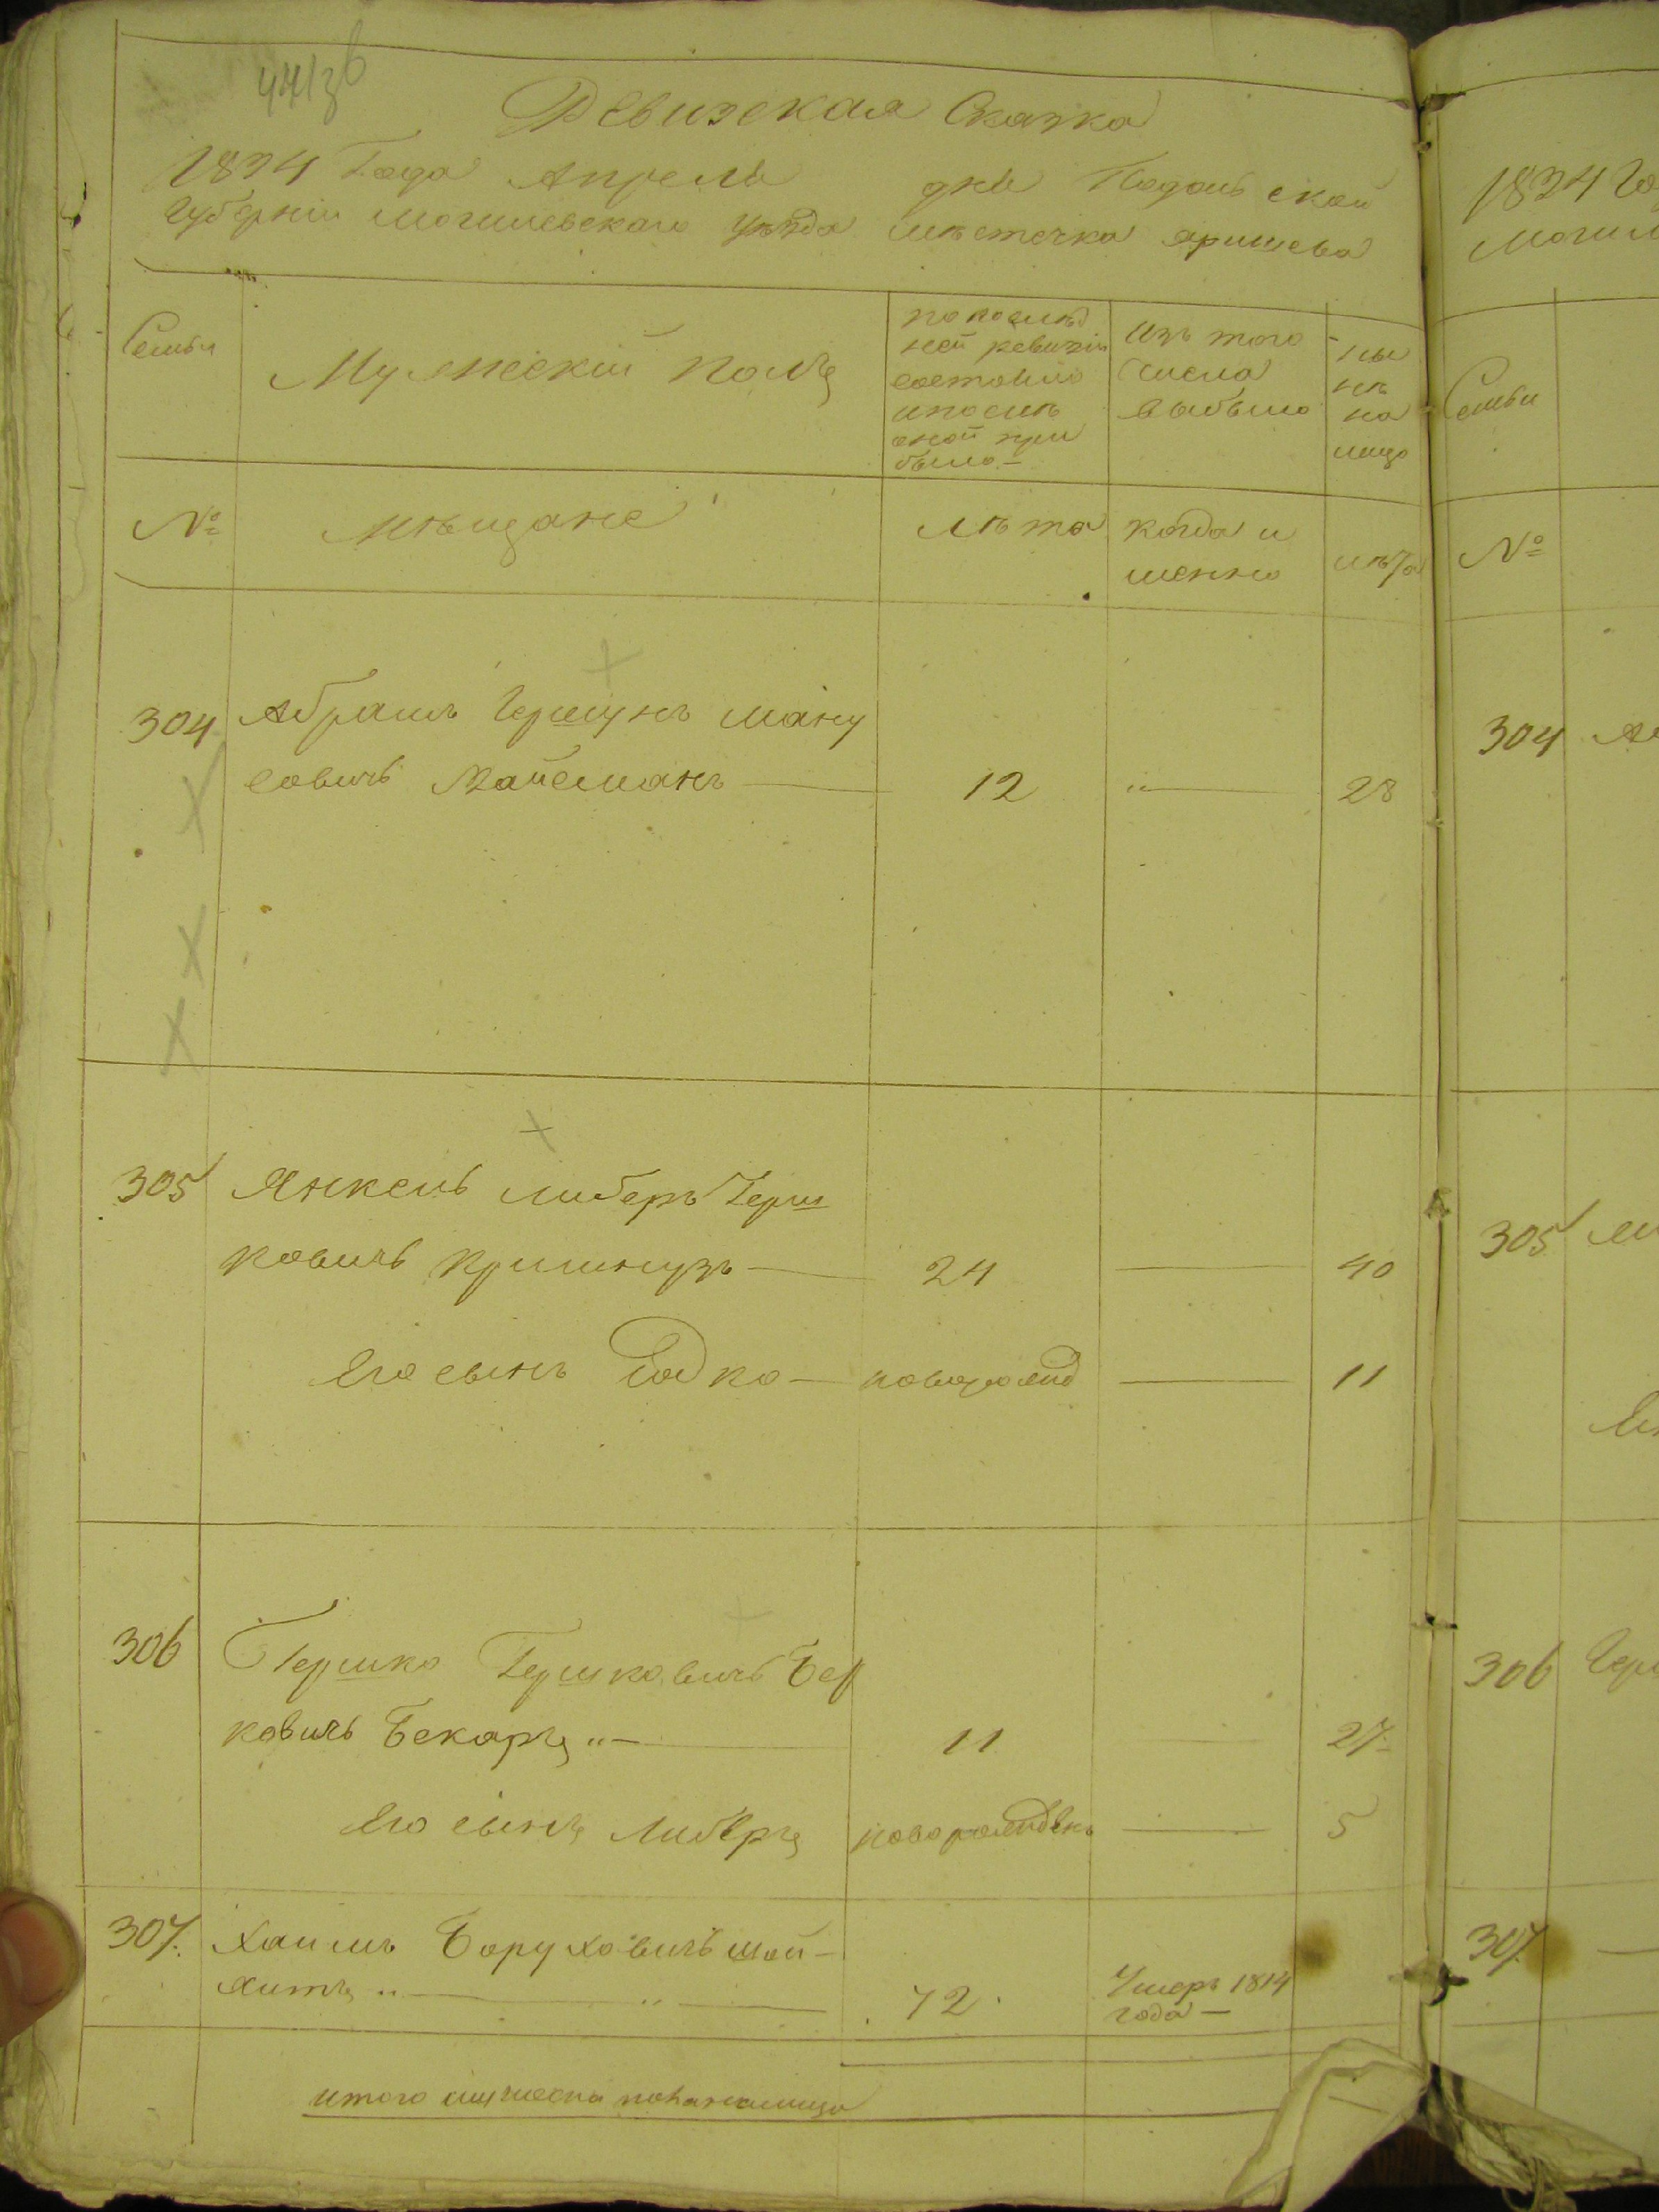 Ревизская Сказка
1834 Года Апреля дня Подольской
Губернiи Могилевскаго уѣзда мѣстечка Яришева
Семьи
Мужескiй полъ
по послѣд
ней ревизiи
состояло
и послѣ
оной при
было
Изъ того
числа
выбыло
ны
нѣ
на
лицо
№
Мѣщане
Лѣта
когда и
менно
лѣта
304
Абрамъ Гершунъ Ману
совичъ Вайсманъ
12
28
305
Янкель Либеръ Герш
ковичъ
24
40
Его сынъ
новорожд
11
306
Гершко Гершковичъ Бер
ковичъ Бекаръ
11
27
Его сынъ Либеръ
новорожденъ
5
307
Хаимъ Боруховичъ Шой-
хитъ
72
Умеръ 1814
года
итого мужеска пола налицо
1834 Го
Могил
Семьи
№
304
305
306
Герш
307